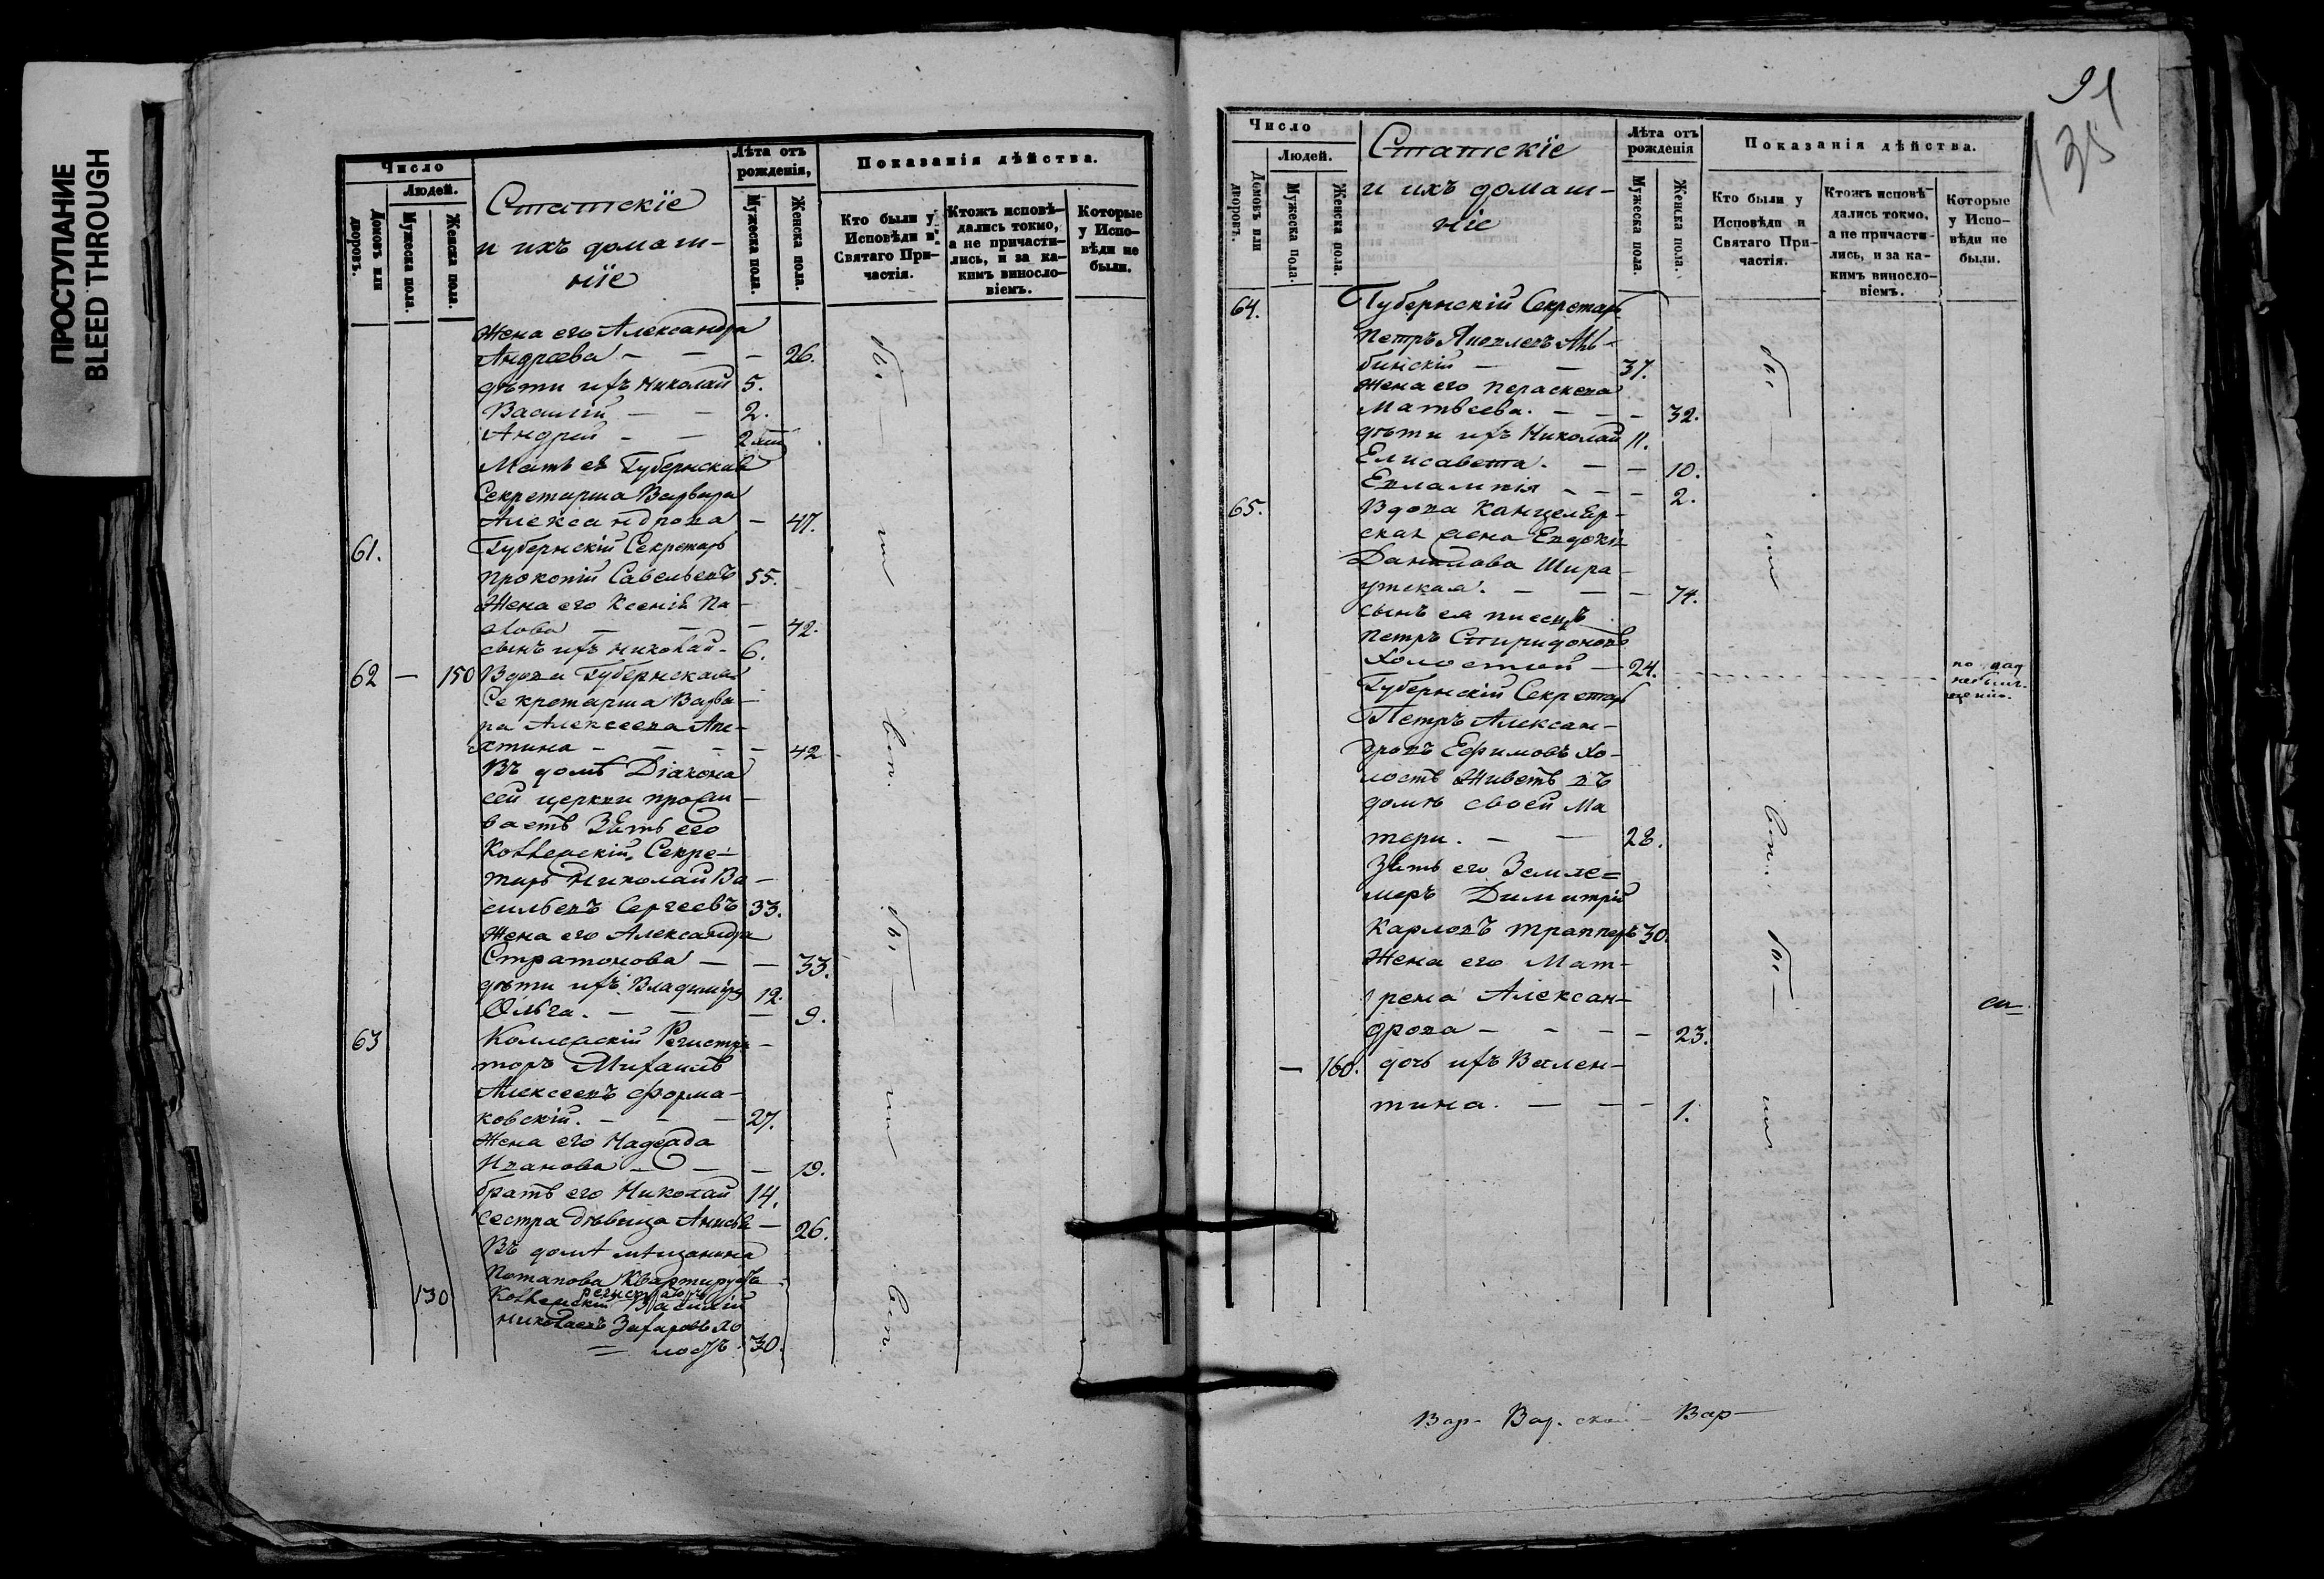 ПРОСТУПАНИЕ
BLEED THROUGH
Число
Людей.
Домовъ или дворовъ.
Мужеска пола.
Женска пола.
Статскіе
и ихъ домаш-
ніе
Лѣта отъ рожденія,
Мужеска пола.
Женска пола.
Показанія дѣйства.
Кто были у Исповѣди и Святаго Причастія.
Ктожъ исповѣ-
дались токмо,
а не причасти-
лись, и за ка-
кимъ винословіемъ.
Которые
у Испо-
вѣди не
были.
Жена его Александра
Андреева — — — 26.
дѣти ихъ Николай 5.
Василій — — 2.
Андрей — — 2
Мать ея Губернская
Секретарша Варвара
Александрова — 47.
61. Губернскій Секретарь
Прокопій Савельевъ 55.
Жена его Ксенія Па-
лова — — — 42.
сынъ ихъ Николай — 6.
62 — 150 Вдова Губернская
Секретарша Варва-
ра Алексеева
— — — 42
Въ домѣ Діакона
сей церкви прожи-
ваетъ Зять его
Коллежскій Секре-
тарь Николай Ва-
сильевъ Сергеевъ 33.
Жена его Александра
Стратонова — — 33.
дѣти ихъ Владиміръ 12.
Ольга. — — — 9.
63 Коллежскій Регистра-
торъ Михаилъ
Алексеевъ Форма-
ковскій. — — — 27.
Жена его Надежда
Иванова — — — 19.
братъ его Николай 14.
сестра дѣвица Анисья — 26.
Въ домѣ мѣщанина
Потапова Квартируетъ
130 Коллежскій регистраторъ Василій
Николаевъ Захаровъ хо
= лостъ. 30.
были
—
ис
—
вси.
были
—
ис
—
вси.
91
135
Число
Людей.
Домовъ или дворовъ.
Мужеска пола.
Женска пола.
Статскіе
и ихъ домаш-
ніе
Лѣта отъ рожденія
Мужеска пола.
Женска пола.
Показанія дѣйства.
Кто были у
Исповѣди и
Святаго При-
частія.
Ктожъ исповѣ-
дались токмо,
а не причасти-
лись, и за ка-
кимъ винословіемъ.
Которые
у Испо-
вѣди не
были.
64. Губернскій Секретарь
Петръ Яковлевъ Аль-
бинскій — — 37.
Жена его Параскева
Матвѣева. — — — 32.
дѣти ихъ Николай 11.
Елисавета. — — 10.
Евлампія — — — 2.
65. Вдова Канцеляр-
ская жена Евдокія
Данилова Шира-
утская. — — — 74.
сынъ ея писецъ
Петръ Спиридоновъ
Холостой — 24.
Губернскій Секретарь
Петръ Алексан-
дровъ Ефимовъ Хо-
лостъ Живетъ въ
домѣ своей Ма
тери. — — 28.
Зять его Земле=
меръ Димитрій
Карловъ Трапперъ 30.
Жена его Мат-
рена Алексан-
дрова — — — — 23.
— 160. дочь ихъ Вален-
тина. — — — 1.
Вар- Вар.ской - Вар-